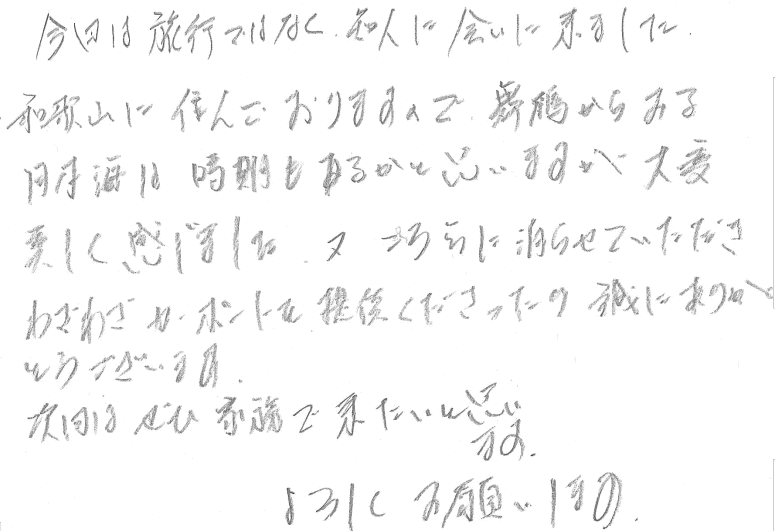 今回は旅行ではなく、知人に会いに来ました。
和歌山に住んでおりますので、舞鶴からみる
日本海は時期もあるかと思いますが、大変
美しく感じました。又、こちらに泊らせていただき
わざわざサポートを提供くださったり誠にありが
とうございます。
次回はぜひ家族で来たいと思い
ます。
よろしくお願いします。